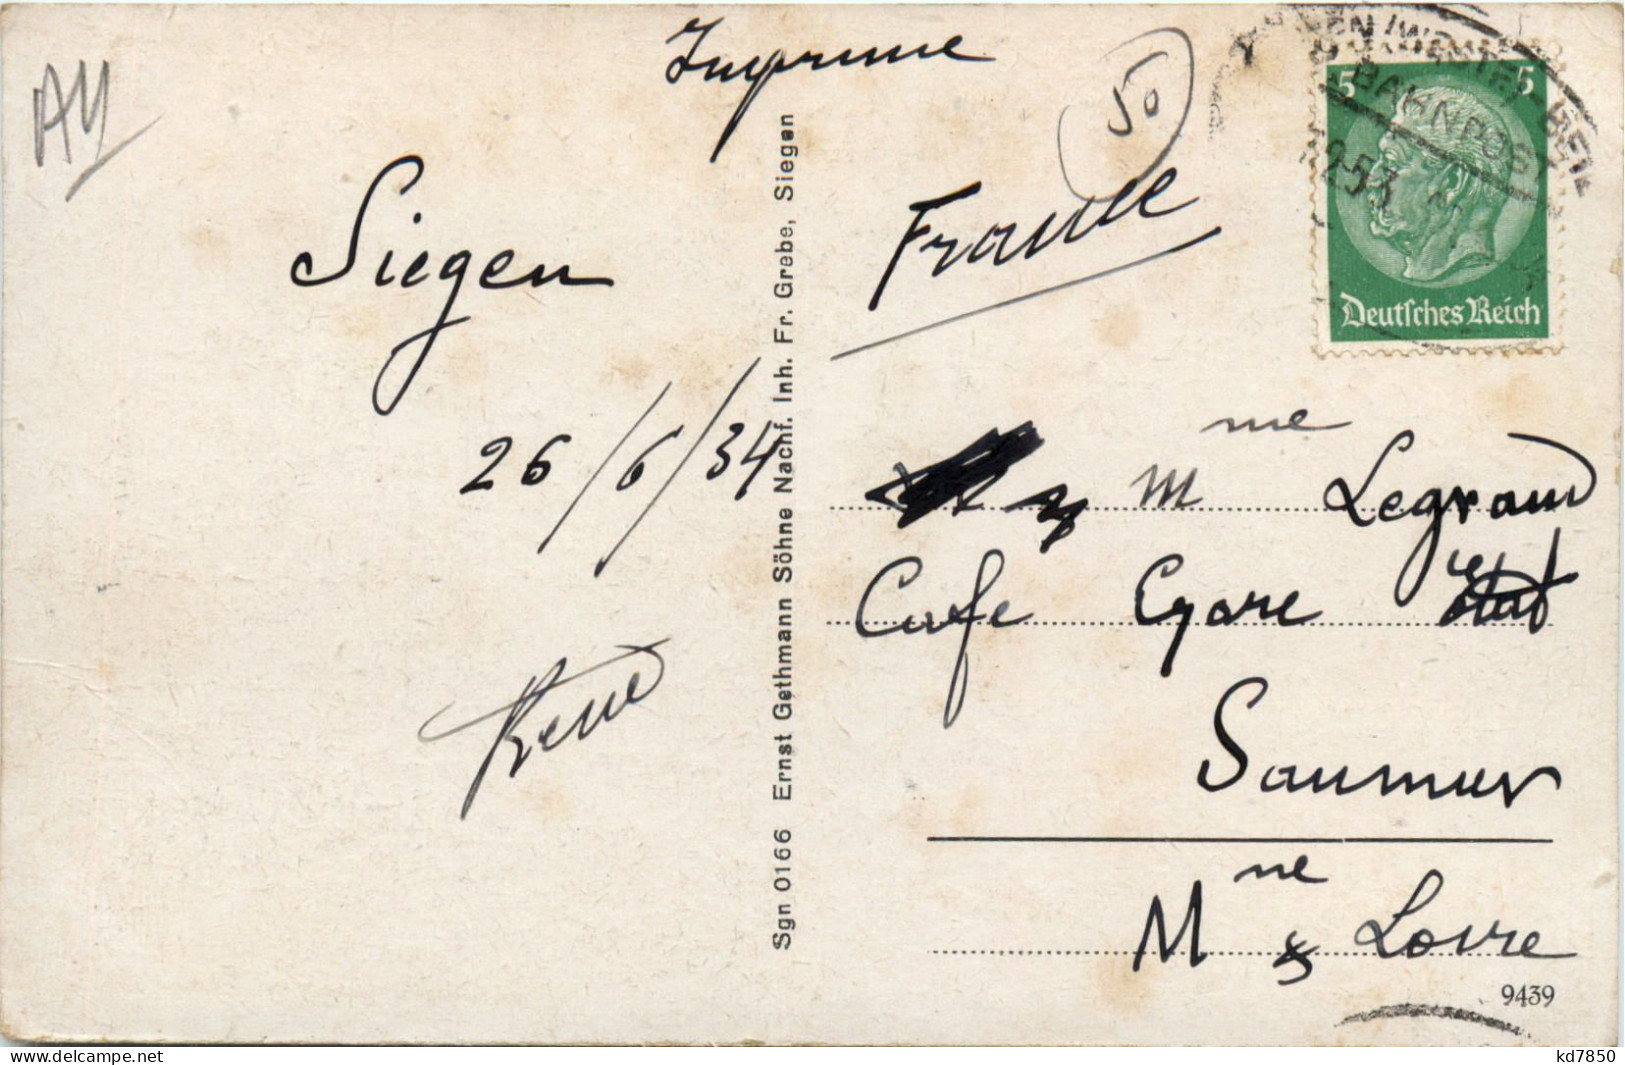 AY
Imprime
50
France
Siegen
26/6/34
René
Sgn 0166 Ernst Gethmann Söhne Nachf. Inh. Fr. Grebe, Siegen
5 5
Deutsches Reich
BAHNPOST
253
Mme Legrand
Cafe Gare Etat
Saumur
Mne & Loire
9439
www.delcampe.net
kd7850